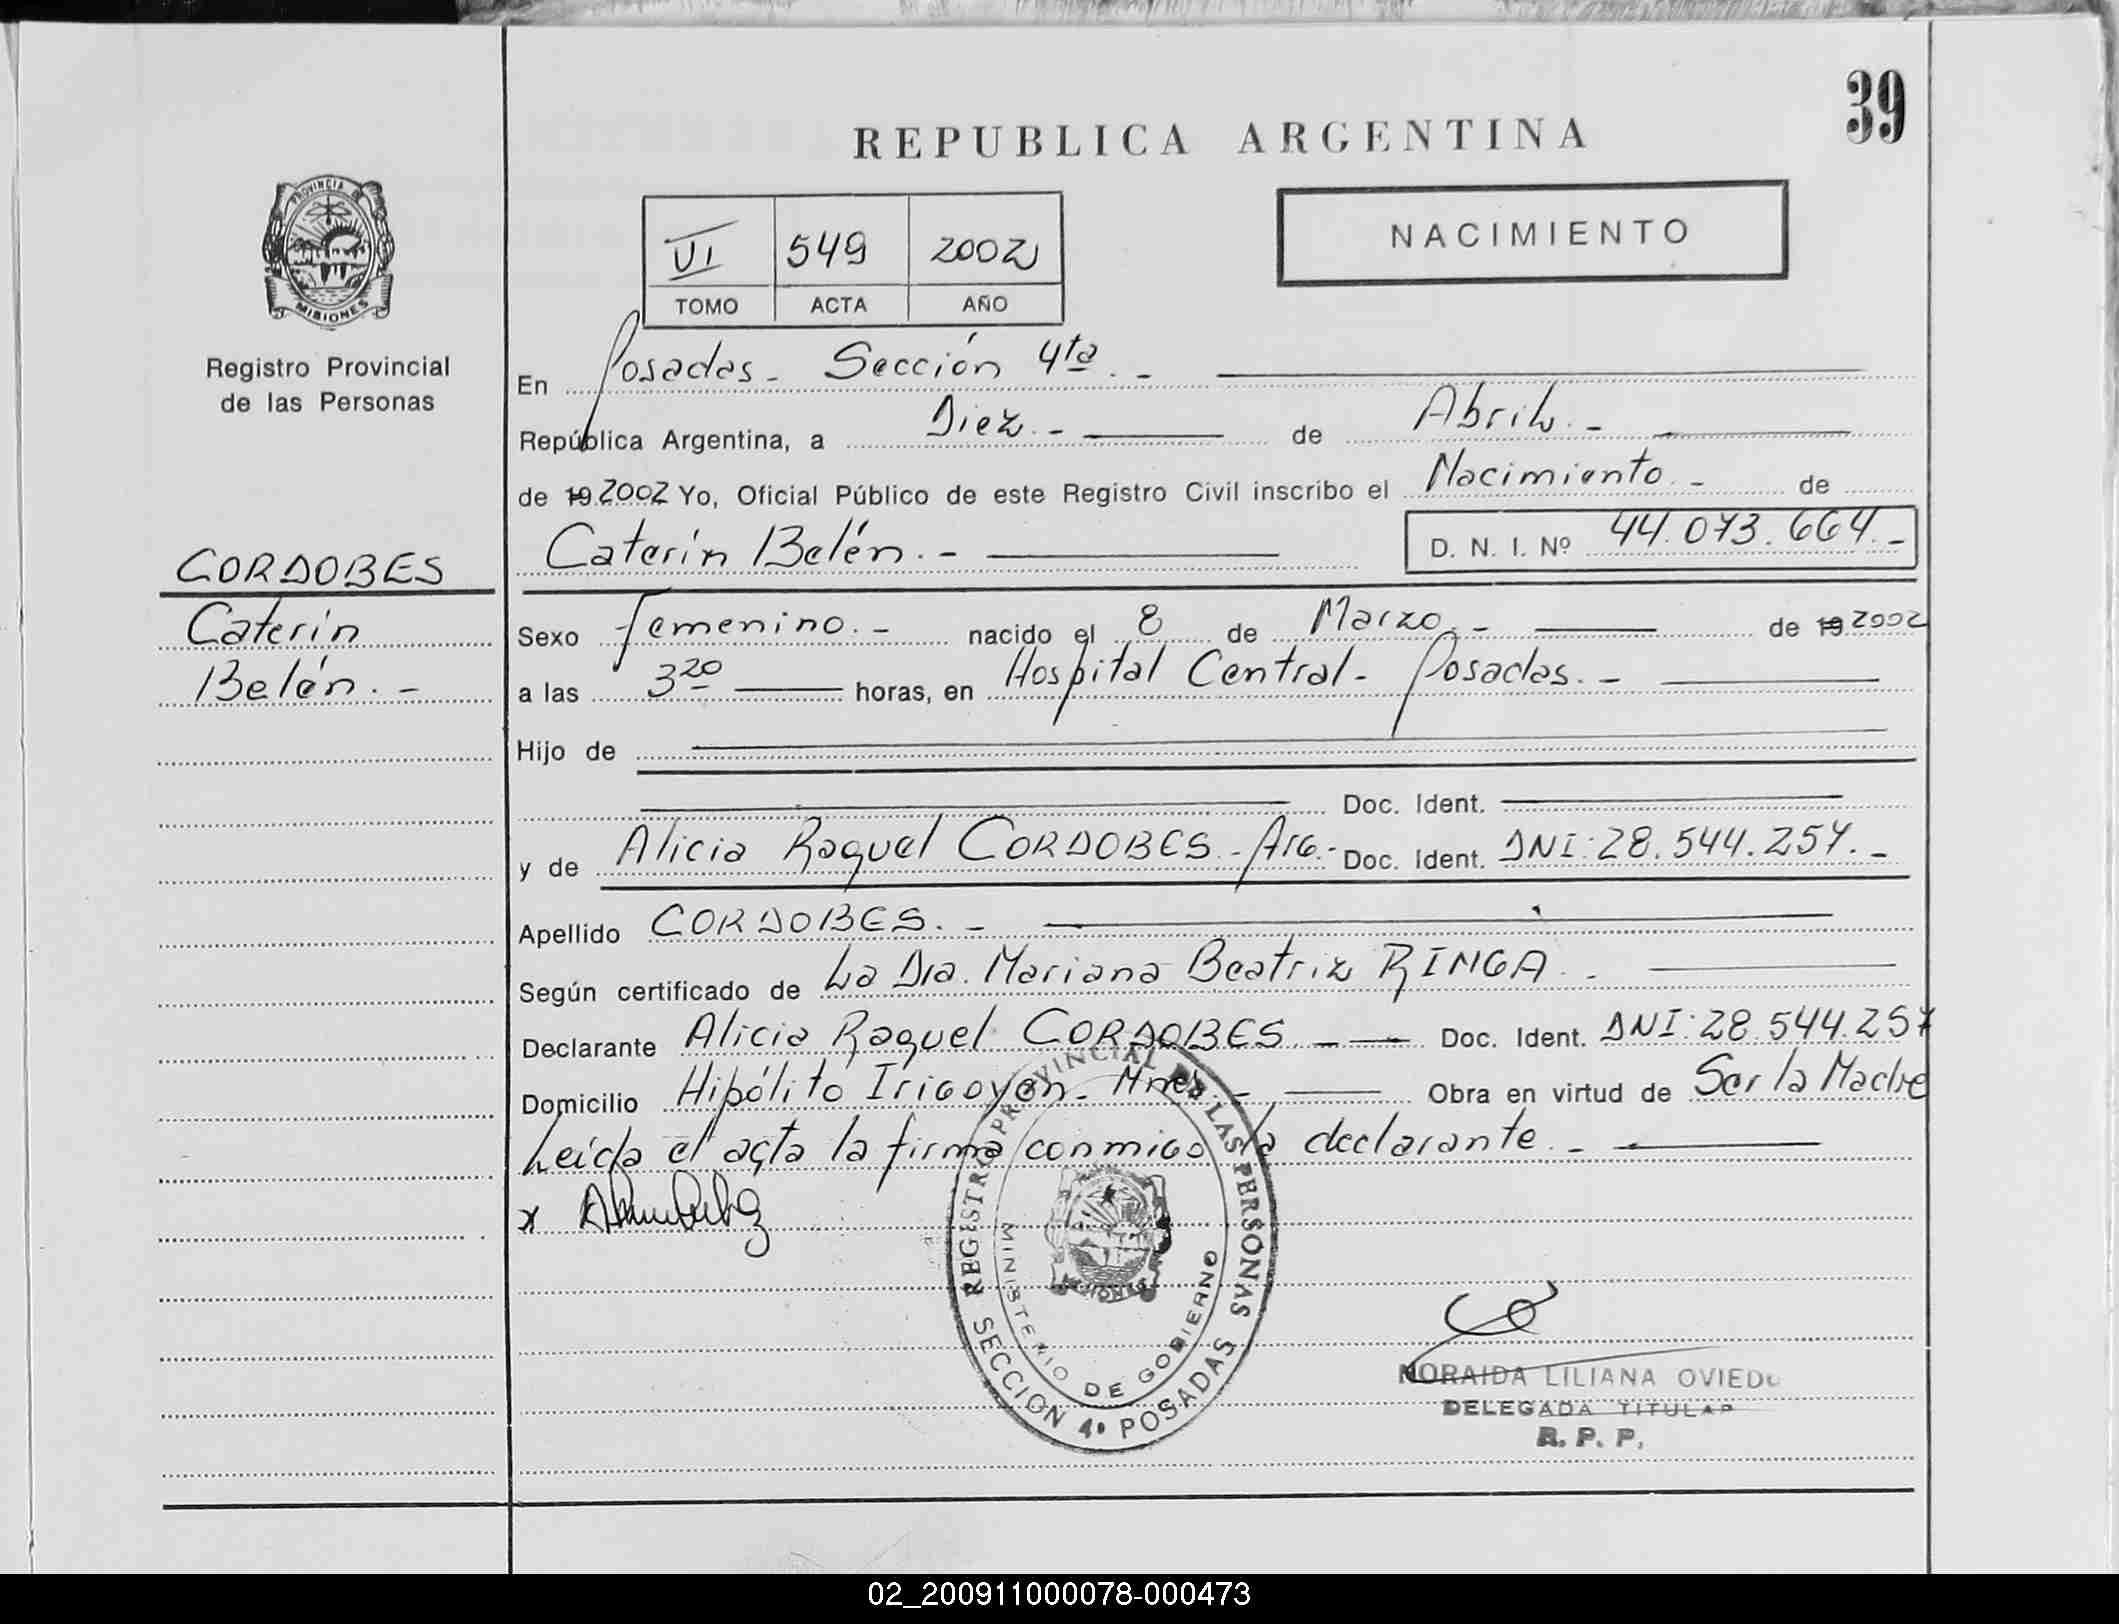 39
REPUBLICA ARGENTINA
PROVINCIA DE
MISIONES
NACIMIENTO
VI 549 2002
TOMO ACTA AÑO
Registro Provincial
de las Personas
En Posadas - Sección 4ta. -
República Argentina, a Diez. - de Abril. -
de 19 2002 Yo, Oficial Público de este Registro Civil inscribo el Nacimiento. - de
Caterin Belén. - D. N. I. Nº 44.073.664. -
CORDOBES
Caterin
Belén. -
Sexo Femenino. - nacido el 8 de Marzo. - de 19 2002
a las 3 20 horas, en Hospital Central - Posadas. -
Hijo de
Doc. Ident.
y de Alicia Raquel CORDOBES - Arg. - Doc. Ident. DNI: 28.544.257. -
Apellido CORDOBES. -
Según certificado de La Dra. Mariana Beatriz RINGA. -
Declarante Alicia Raquel CORDOBES - Doc. Ident. DNI: 28.544.257
Domicilio Hipólito Irigoyen - Mnes. - Obra en virtud de Ser la Madre
Leída el acta la firma conmigo la declarante. -
x
REGISTRO PROVINCIAL DE LAS PERSONAS
MINISTERIO DE GOBIERNO
MISIONES
SECCION 4a POSADAS
NORAIDA LILIANA OVIEDO
DELEGADA TITULAR
R. P. P.
02_200911000078-000473